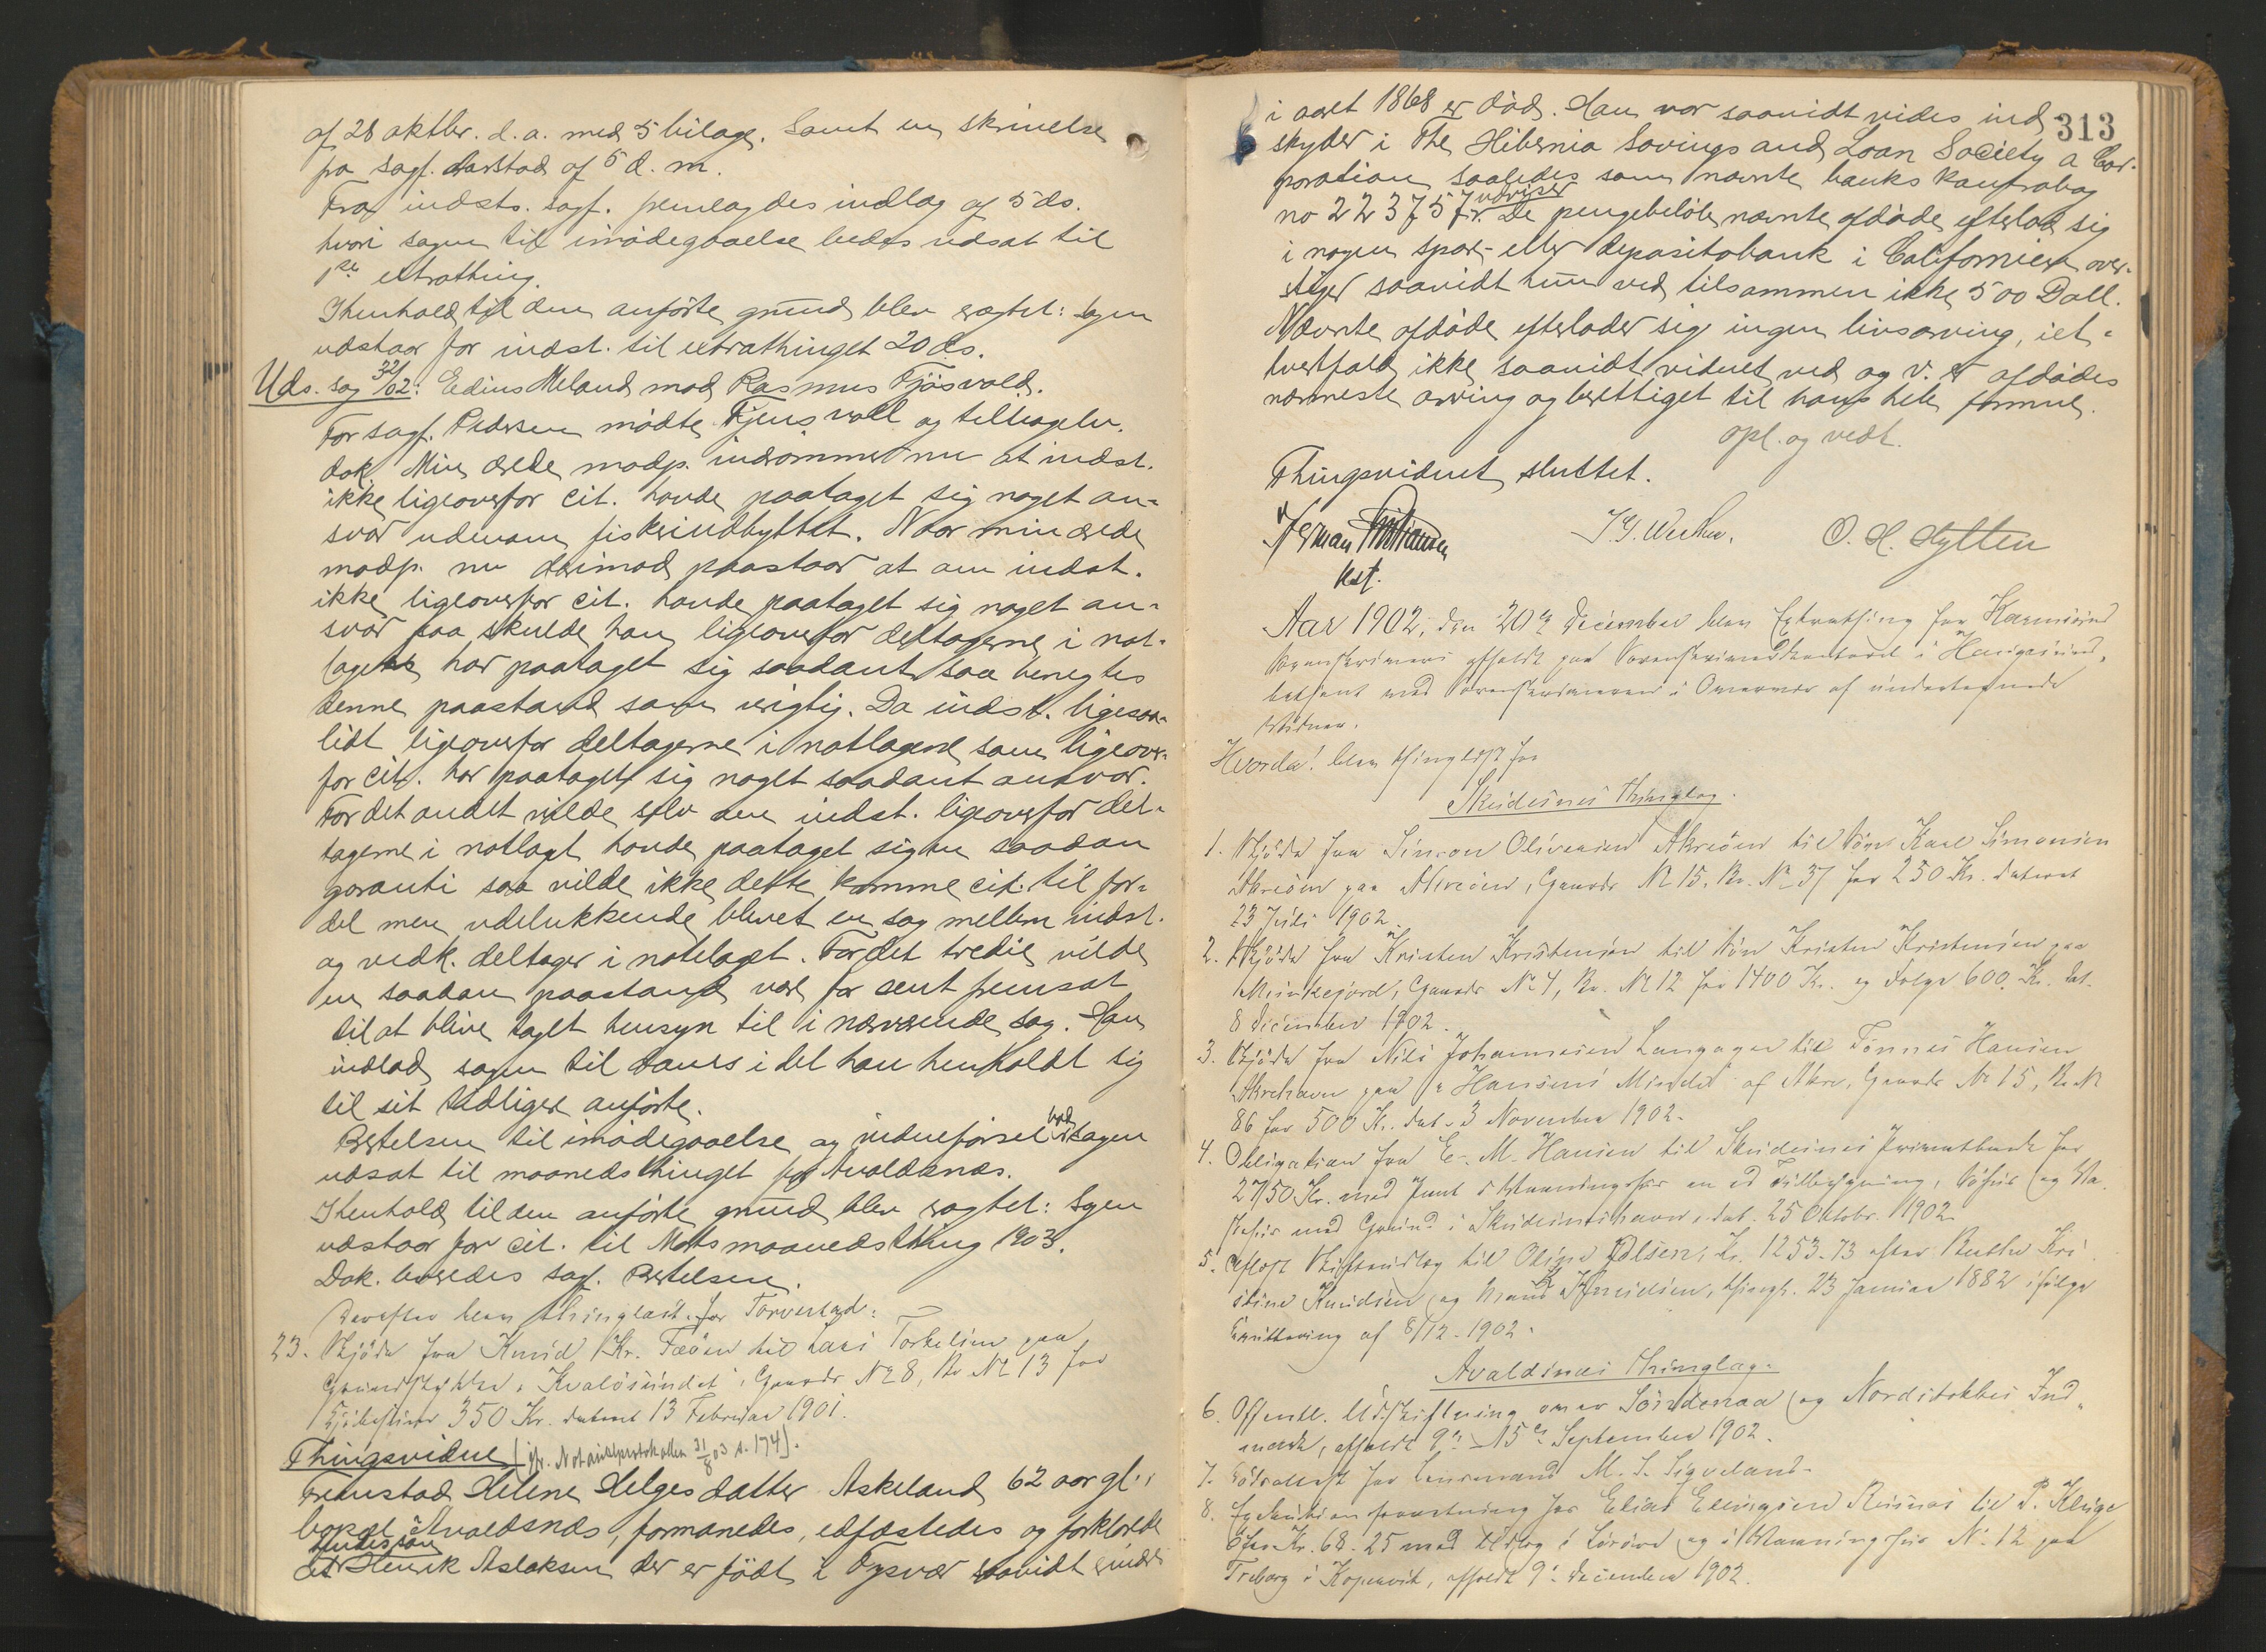 af 28 oktbr. d. a. med 5 bilage. Samt en skrivelse
fra sagf. Aarstad af 5 d. m.
Fra indsts. sagf. fremlagdes indlæg af 5 ds.
hvori sagen til imödegaaelse bedes udsat til
1ste extrathing.
I henhold til den anförte grund blev eragtet: Sagen
udstaar for indst. til extrathinget 20 ds.
Uds. sag 32/02: Edius Meland mod Rasmus Fjösvold.
For sagf. Pedersen mödte Fjensvoll og tilbagelev.
dok. Min ærede modp. indrömmer nu at indst.
ikke ligeoverfor cit. havde paataget sig noget an-
svar udenom fiskeriudbyttet. Naar min ærede
modp. nu derimod paastaar at om indst.
ikke ligeoverfor cit. havde paataget sig noget an-
svar saa skulde han ligeoverfor deltagerne i not-
laget har paataget sig saadant saa benegtes
denne paastand som urigtig. Da indst. ligesaa-
lidt ligeoverfor deltagerne i notlaget som ligeover-
for cit. har paataget sig noget saadant ansvar.
For det andet vilde selv om indst. ligeoverfor del-
tagerne i notlaget havde paataget sig en saadan
garanti saa vilde ikke dette komme cit. til for-
del men udelukkende blevet en sag mellem indst.
og vedk. deltager i notelaget. For det tredie vilde
en saadan paastand være for sent fremsat
til at blive taget hensyn til i nærværende sag. Han
indlod sagen til doms i det han henholdt sig
til sit tidligere anförte.
Bertelsen til imödegaaelse og vidneförsel bad sagen
udsat til maanedsthinget for Avaldsnæs.
I henhold til den anförte grund blev eragtet: Sagen
udstaar for cit. til Marts maanedsthing 1903.
Dok. leveredes sagf. Bertelsen.
Derefter blev thinglæst for Torvestad:
23. Skjöde fra Knud Kr. Fæöen til Lars Torkelsen paa
Grundstykke i Kvalösundet, Gaards No 8, Br No 13 for
Kjöbesum 350 Kr. dateret 13 Februar 1901.
Thingsvidne (jfr. Notarialprotokollen 31/8 03 s. 174).
Fremstod Helene Helgesdatter Askeland 62 aar gl.
bopæl i Avaldsnæs, formanedes, edfæstedes og forklarede
at hendes sön Henrik Aslaksen der er födt i Tysvær saavidt
i aaret 1868 er död. Han var saavidt vides ind-
313
skyder i The Hibernia Savings and Loan Society a Cor-
poration saaledes som nævnte banks kontrabog
no 223757 udviser. De pengebelöb nævnte afdöde efterlod sig
i nogen spare- eller depositobank i Californien over-
stiger saavidt hun ved tilsammen ikke 500 Doll.
Nævnte afdöde efterlader sig ingen livsarving, iet-
hvertfald ikke saavidt vidnet ved og v. er afdödes
nærmeste arving og berettiget til hans hele formue.
opl. og vedt.
Thingsvidnet sluttet.
Herman Christiansen
kst.
O. H. Hytten
Aar 1902, den 20de December blev Extrathing for Karmsund
Sorenskriveri afholdt paa Sorenskriverkontoret i Haugesund,
betjent med Sorenskriveren i Overvær af undertegnede
Vidner.
Hvorda! blev thinglæst for
Skudesnes Thinglag.
1. Skjöde fra Simon Olivesen Akreöen til Sön Karl Simonsen
Akreöen paa Akreöen, Gaards No 15, Br. No 37 for 250 Kr. dateret
23 Juli 1902.
2. Skjöde fra Kristen Kristensen til Sön Kristen Kristensen paa
Munkejord, Gaards No 4, Br. No 12 for 1400 Kr. og Folge 600 Kr. dat.
8 December 1902.
3. Skjöde fra Nils Johannesen Langager til Tönnes Hansen
Akrehavn paa "Hansens Minde" af Akre, Gaards No 15, Br. N
86 for 500 Kr. dat. 3 November 1902.
4. Obligation fra E. M. Hansen til Skudesnes Privatbank for
2750 Kr. med Pant i Vaaningshus en ed Tilbygning, Söhus og Va-
skehus med Grund i Skudesneshavn, dat. 25 Oktobr. 1902.
5. Aflyst Skifteudlæg til Oline Olsen, Kr. 1253.73 efter Berthe Kri-
stine Knudsen og Mand Knudsen, thingl. 23 Januar 1882 ifölge
Kvittering af 8/12 1902.
Avaldsnæs Thinglag.
6. Offentl. Udskiftning over Söndenaa og Nordstokkes Ind-
mark, afholdt 9de–15de September 1902.
7. Lensmand M. S. Sigveland.
8. Exekutionsforretning hos Elias Ellingsen Risnæs til P. Kluge
for Kr. 68.25 med Udlæg i Lösöre og i Vaaningshus No 12 paa
Treborg i Kopervik, afholdt 9de December 1902.